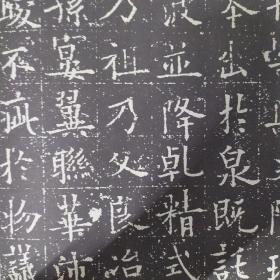 本出於泉既託
波並降乾精式
乃祖乃父良冶
孫宴翼聯華
峻不疵於物議